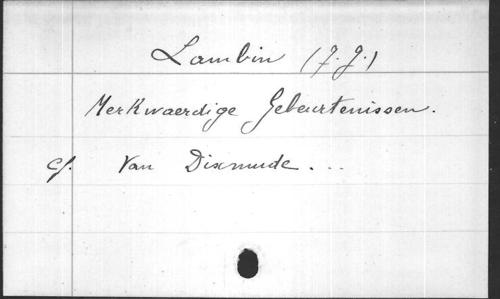 Lambin (J. J.)
Merkwaerdige Gebeurtenissen.
cf. Van Dixmude. ...